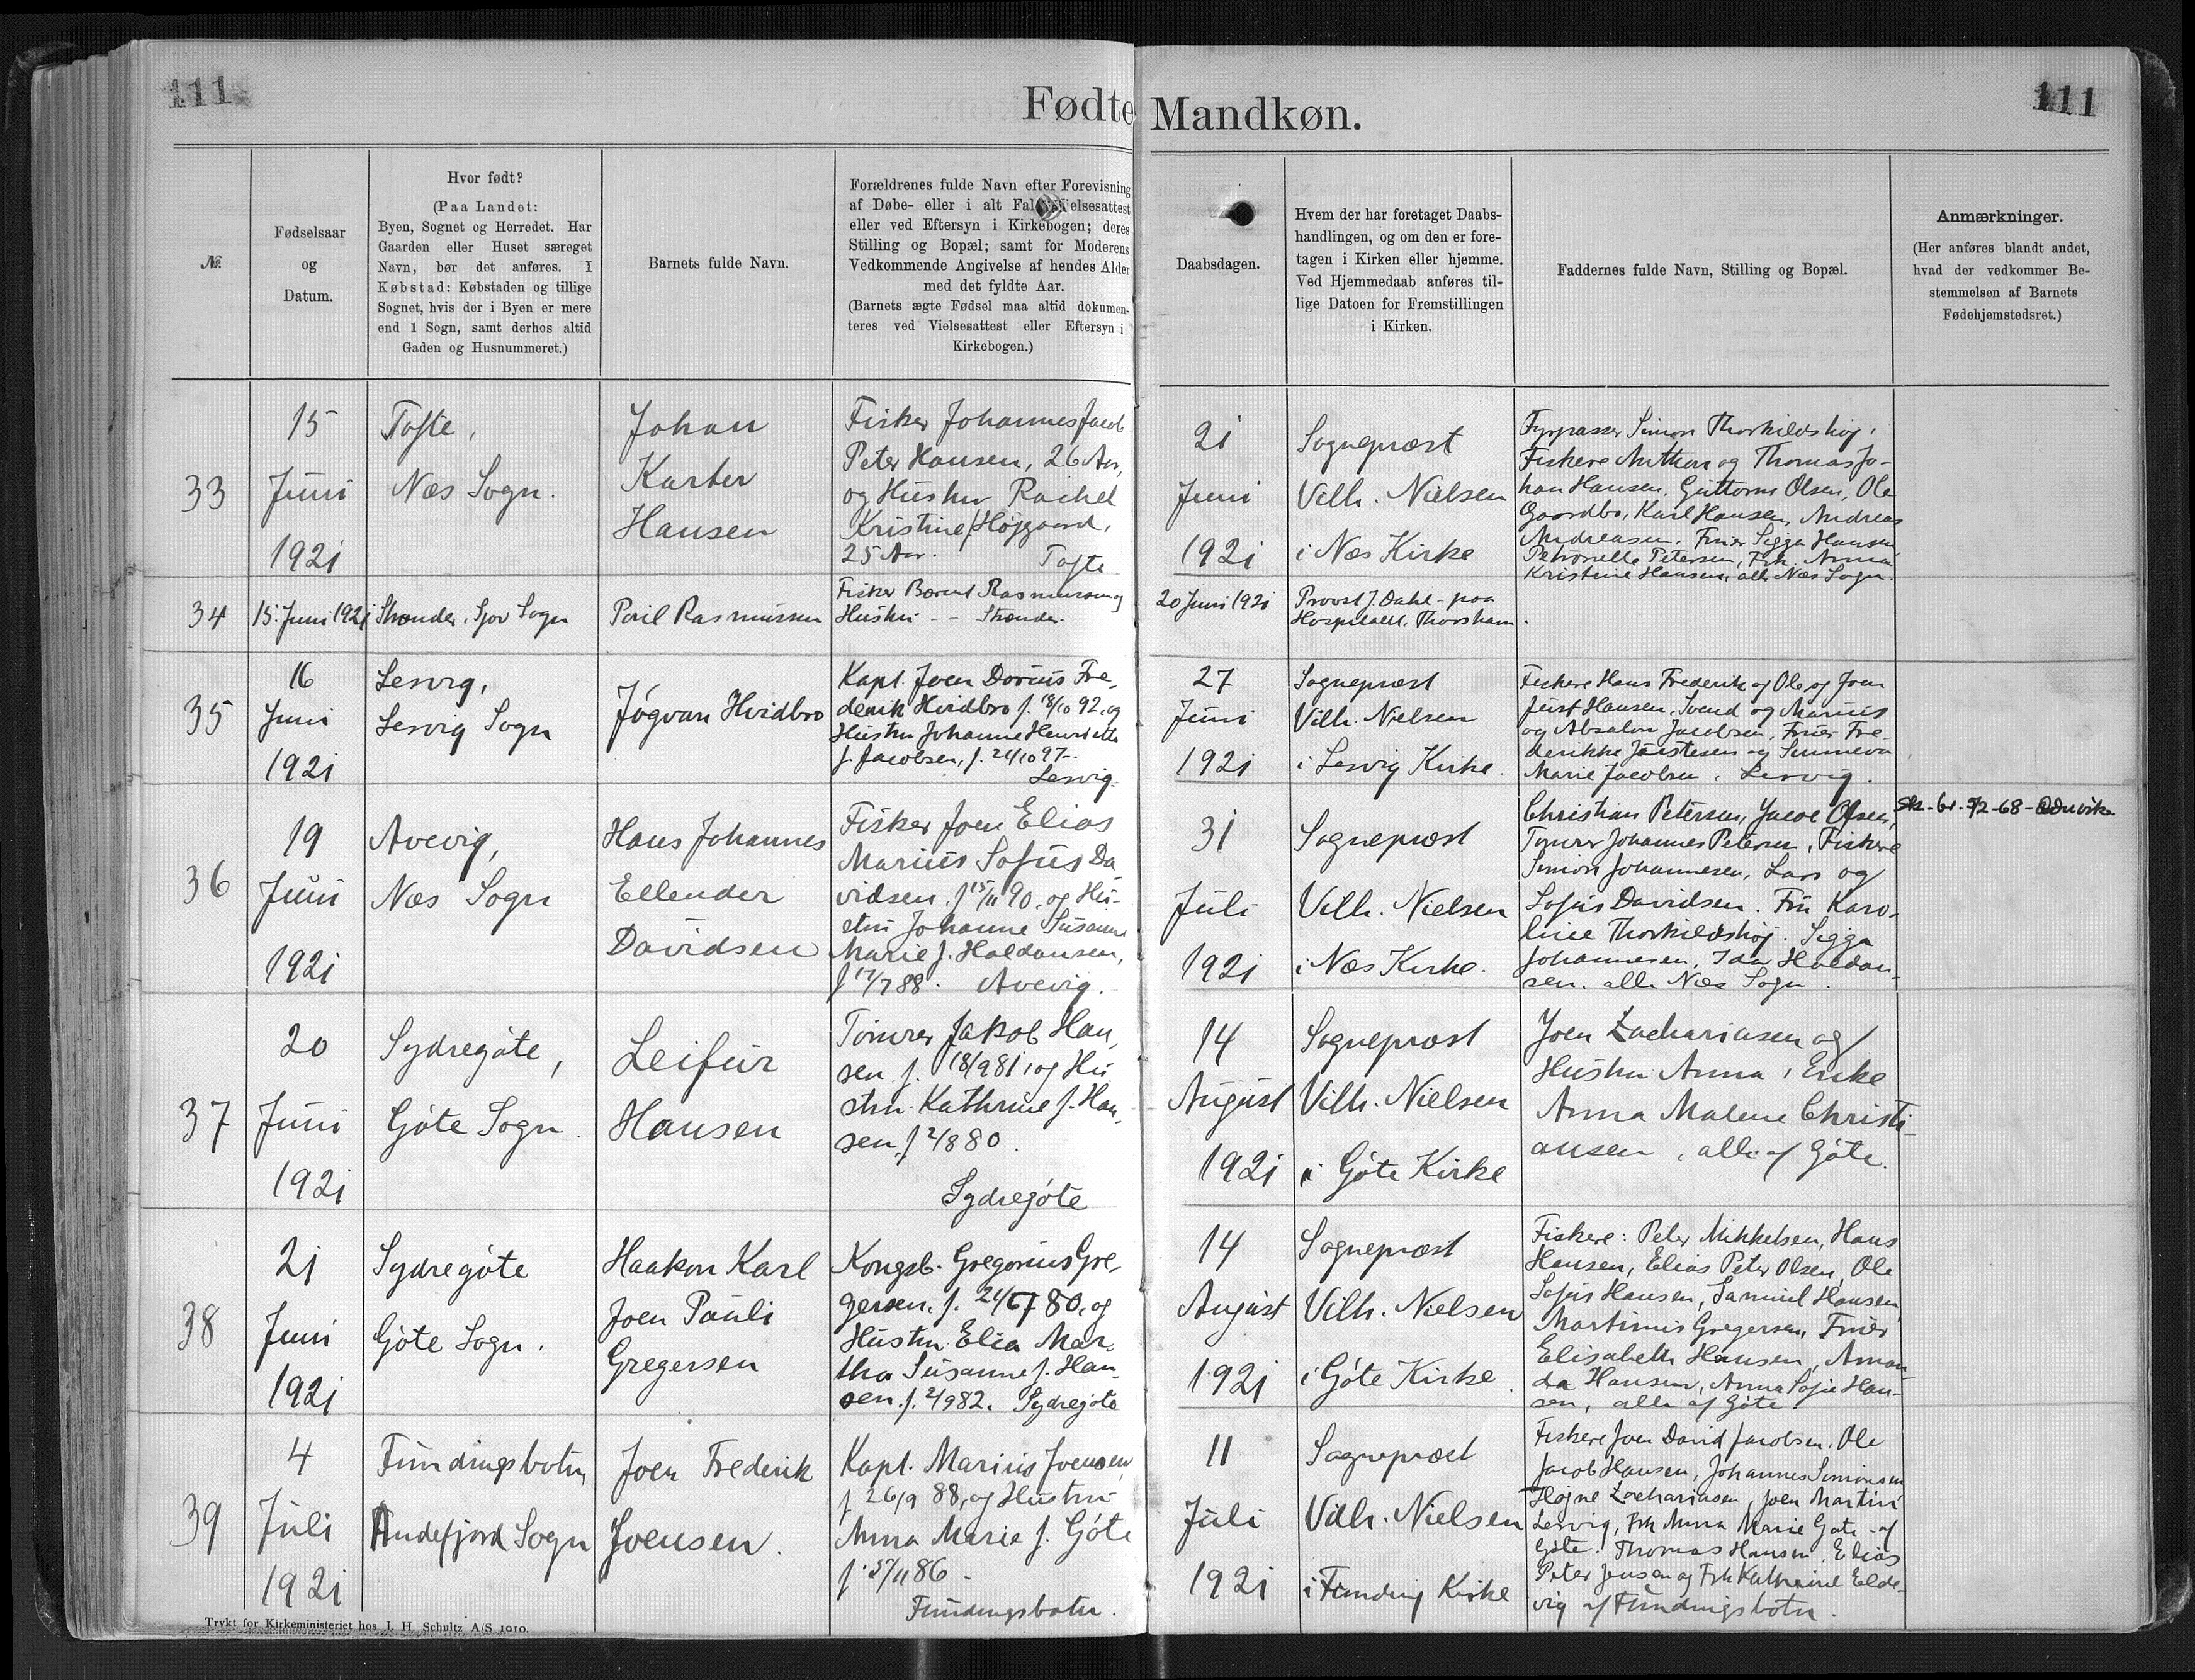 111
Fødte
Mandkøn.
111
№.
Fødselsaar
og
Datum.
Hvor født?
(Paa Landet:
Byen, Sognet og Herredet. Har
Gaarden eller Huset særeget
Navn, bør det anføres. I
Købstad: Købstaden og tillige
Sognet, hvis der i Byen er mere
end 1 Sogn, samt derhos altid
Gaden og Husnummeret.)
Barnets fulde Navn.
Forældrenes fulde Navn efter Forevisning
af Døbe- eller i alt Fald Vielsesattest
eller ved Eftersyn i Kirkebogen; deres
Stilling og Bopæl; samt for Moderens
Vedkommende Angivelse af hendes Alder
med det fyldte Aar.
(Barnets ægte Fødsel maa altid dokumen-
teres ved Vielsesattest eller Eftersyn i
Kirkebogen.)
Daabsdagen.
Hvem der har foretaget Daabs-
handlingen, og om den er fore-
tagen i Kirken eller hjemme.
Ved Hjemmedaab anføres til-
lige Datoen for Fremstillingen
i Kirken.
Faddernes fulde Navn, Stilling og Bopæl.
Anmærkninger.
(Her anføres blandt andet,
hvad der vedkommer Be-
stemmelsen af Barnets
Fødehjemstedsret.)
33
15
Juni
1921
Tofte,
Næs Sogn.
Johan
Karter
Hansen
Fisker Johannes Jacob
Peter Hansen, 26 Aar,
og Hustru Rachel
Kristine f. Højgaard,
25 Aar.
Tofte
21
Juni
1921
Sognepræst
Vilh. Nielsen
i Næs Kirke
Fyrpasser Simon Thorkildshøj,
Fiskere Anthon og Thomas Jo-
han Hansen, Guttorm Olsen, Ole
Gaardbo, Karl Hansen, Andreas
Andreasen. Fruer Sigga Hansen
Petronelle Petersen, Frk. Anna
Kristine Hansen, alle Næs Sogn.
34
15. Juni 1921
Strænder, Sjov Sogn
Poul Rasmussen
Fisker Berent Rasmussen og
Hustru - - Strænder.
20 Juni 1921
Provst J. Dahl - paa
Hospitalet, Thorshavn.
35
16
Juni
1921
Lervig,
Lervig Sogn
Jógvan Hvidbro
Kapt. Joen Dorius Fre-
derik Hvidbro f. 18/10 92, og
Hustru Johanne Henriette
f. Jacobsen, f. 24/10 97.
Lervig.
27
Juni
1921
Sognepræst
Vilh. Nielsen
i Lervig Kirke.
Fiskere Hans Frederik og Ole og Joen
Just Hansen, Svend og Marius
og Absalon Jacobsen, Fruer Fre-
derikke Justesen og Sunneva
Marie Jacobsen, Lervig.
36
19
Juni
1921
Avevig,
Næs Sogn
Hans Johannes
Ellender
Davidsen
Fisker Joen Elias
Marius Sofus Da
vidsen, f 15/11 90, og Hu-
stru Johanne Susanne
Marie f. Haldansen,
f 17/7 88. Avevig.
31
Juli
1921
Sognepræst
Vilh. Nielsen
i Næs Kirke.
Christian Petersen, Jacob Olsen,
Tømrer Johannes Petersen, Fiskere
Simon Johannesen, Lars og
Sofus Davidsen. Fru Karo-
line Thorkildshøj. Sigga
Johannesen, Ida Haldan-
sen, alle Næs Sogn.
37
20
Juni
1921
Sydregóte,
Góte Sogn.
Leifur
Hansen
Tømrer Jakob Han-
sen f. 18/9 81, og Hu
stru Kathrine f. Han-
sen, f 2/8 80.
Sydregóte
14
August
1921
Sognepræst
Vilh. Nielsen
i Góte Kirke
Joen Zachariasen og
Hustru Anna, Enke
Anna Malene Christi-
ansen, alle af Góte.
38
21
Juni
1921
Sydregóte
Góte Sogn.
Haakon Karl
Joen Pauli
Gregersen
Kongsb. Gregorius Gre-
gersen, f. 80, og
Hustru Elia Mar-
tha Susanne f. Han-
sen, f. 2/9 82. Sydregóte
14
August
1921
Sognepræst
Vilh. Nielsen
i Góte Kirke.
Fiskere: Peter Mikkelsen, Hans
Hansen, Elias Peter Olsen, Ole
Sofus Hansen, Samuel Hansen,
Martinus Gregersen, Fruer
Elisabeth Hansen, Aman-
da Hansen, Anna Sofie Han-
sen, alle af Góte.
39
4
Juli
1921
Fundingsbotn,
Andefjord Sogn
Joen Frederik
Joensen.
Kapt. Marius Joensen,
f 26/9 88, og Hustru
Anna Marie f. Góte
f. /11 86.
Fundingsbotn.
11
Juli
1921
Sognepræst
Vilh. Nielsen
i Funding Kirke
Fiskere Joen David Jacobsen, Ole
Jacob Hansen, Johannes Simonsen
Højne Zachariasen, Joen Martin
Lervig, Frk Anna Marie Góte - af
Góte. Thomas Hansen, Elias
Peter Jensen og Frk Kathrine Elde-
vig af Fundingsbotn.
Trykt for Kirkeministeriet hos J. H. Schultz A/S 1910.